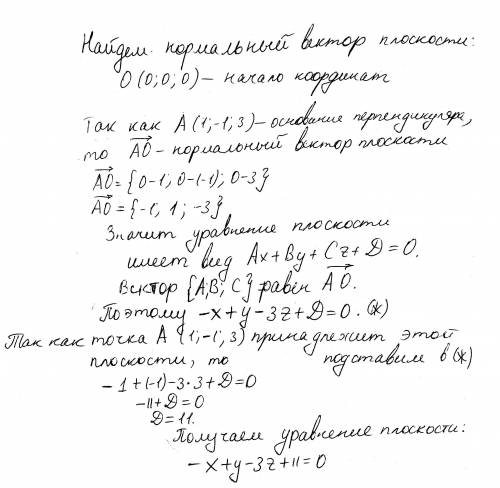 Найдем нормальный вектор плоскости:
O(0;0;0) – начало координат
Так как A(1;-1;3) – основание перпендикуляра,
то \overrightarrow{AO} – нормальный вектор плоскости
\overrightarrow{AO}={0-1; 0-(-1); 0-3}
\overrightarrow{AO}={-1; 1; -3}
Значит уравнение плоскости
имеет вид Ax+By+Cz+D=0.
Вектор {A;B;C} равен \overrightarrow{AO}.
Поэтому -x+y-3z+D=0. (*)
Так как точка A(1;-1;3) принадлежит этой
плоскости, то подставим в (*)
-1+(-1)-3·3+D=0
-11+D=0
D=11.
Получаем уравнение плоскости:
-x+y-3z+11=0